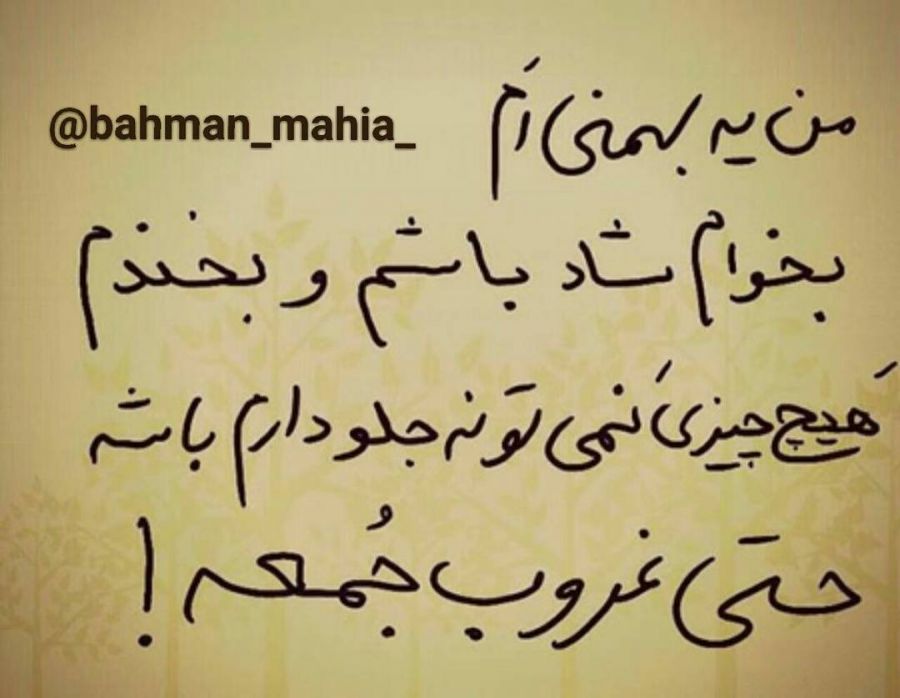 @bahman_mahia_
من یه بهمنی اَم
بخوام شاد باشم و بخندم
هَیچ چیزی نَمی تونه جلودارم باشه
حتی غروب جُمعه !